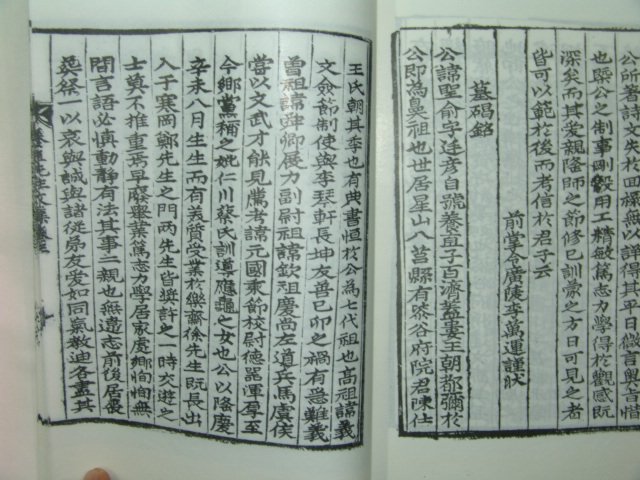 公師著詩文失於回祿無以詳得其平日儀言奧旨惜
也槩公之制事剛毅用工精敏篤志力學得於觀感旣
深矣而其愛親隆師之節修已訓蒙之方日可見之者
皆可以範於後而考信於君子云
前掌令廣陵李萬運謹狀
墓碣銘
公諱聖俞字廷彦自號養直子百濟蓋婁王朝都彌於
公即為鼻祖也世居星山八莒縣有黍谷府院君陳仕
王氏朝其季也有典書恒於公為七代祖也高祖諱義
文僉節制使與李琴軒長坤友善己卯之禍有急難義
曾祖諱舜卿展力副尉祖諱欽祖慶尚左道兵馬虞侯
當以文武才能見薦考諱元國秉節校尉德器渾厚至
今鄉黨稱之妣仁川蔡氏訓導應龜之女也公以隆慶
辛未八月生生而有美質受業於樂齋徐先生旣長出
入于寒岡鄭先生之門兩先生皆奬許之一時交遊之
士莫不推重焉早廢舉業篤志力學居家處鄉恂恂無
間言語必慎動靜有法其事二親也無違志前後居喪
葬祭一以哀與誠與諸從弟友愛如同氣教迪各盡其